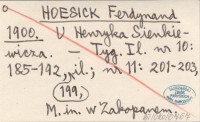 HOESICK Ferdynand
1900. U Henryka Sienkie-
wicza. — Tyg. Il. nr 10:
185-192, il.; nr 11: 201-203,
(199,
M. in. w Zakopanem.